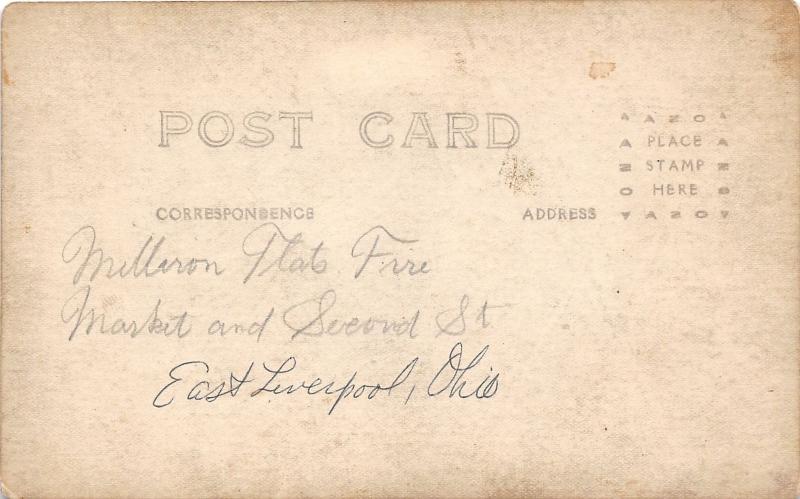 POST CARD
AZO
PLACE
STAMP
HERE
AZO
CORRESPONDENCE
ADDRESS
Milliron Flats Fire
Market and Second St
East Liverpool, Ohio